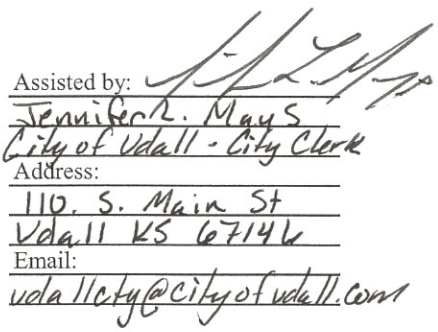 Assisted by:
Jennifer L. Mays
City of Udall - City Clerk
Address:
110. S. Main St
Udall KS 67146
Email:
udallcty@cityofudall.com